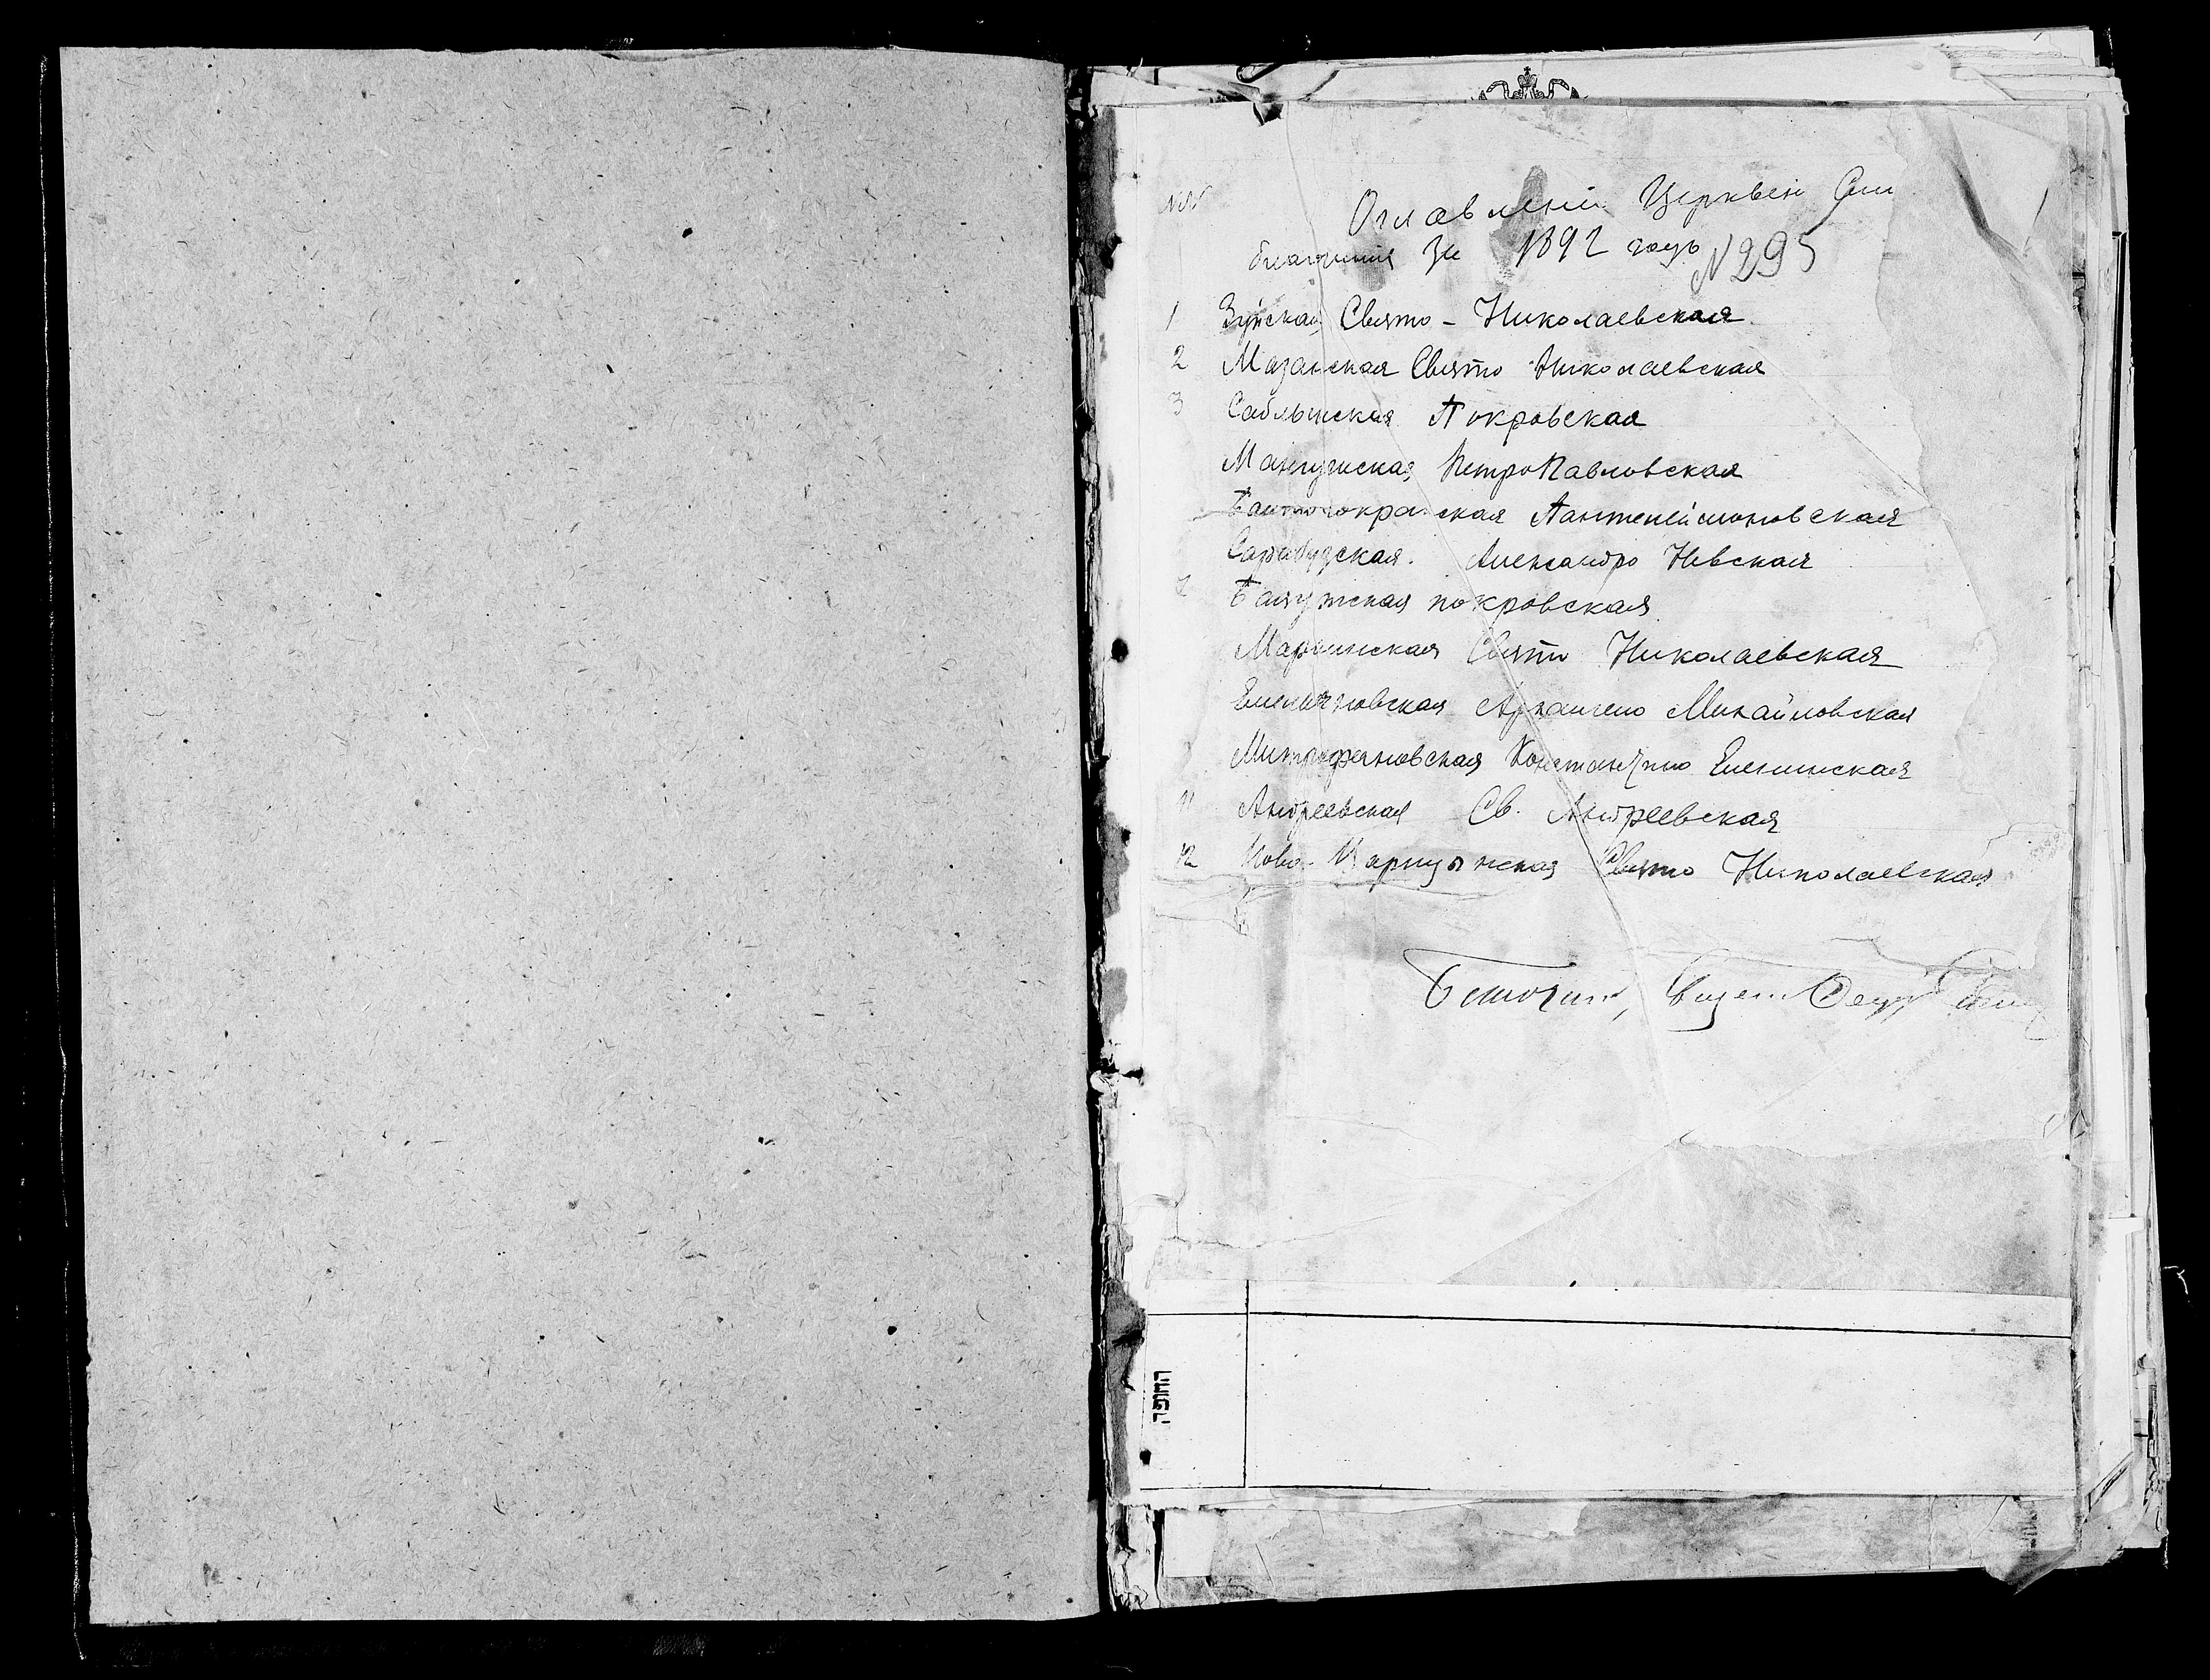 NN Оглавленіе Церквей Сим
благочинія За 1892 годъ N 295
1 Зуйская Свято - Николаевская
2 Мазанская Свято Николаевская
3 Саблынская Покровская
Мангушская ПетроПавловская
ская Пантелеймоновская
Сарабузская. Александро Невская
7 покровская
Марьинская Свято Николаевская
Емельяновская Архангело Михайловская
Митрофановская Константино Еленинская
11 Андреевская Св. Андреевская
12 Ново-Царицынская Свято Николаевская
החופה